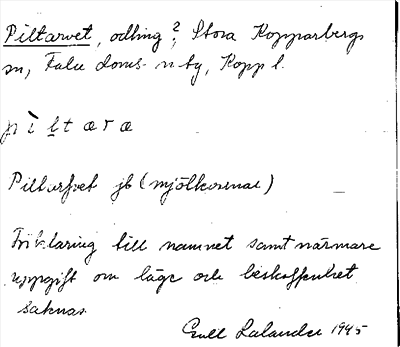 Piltarvet, odling?, Stora Kopparbergs
sn, Falu doms. n by, Kopp l.
p ì l t æ r æ
Piltarfvet jb (mjölkorna)
Förklaring till namnet samt närmare
uppgift om läge och beskaffenhet
saknas.
Lalander 1945